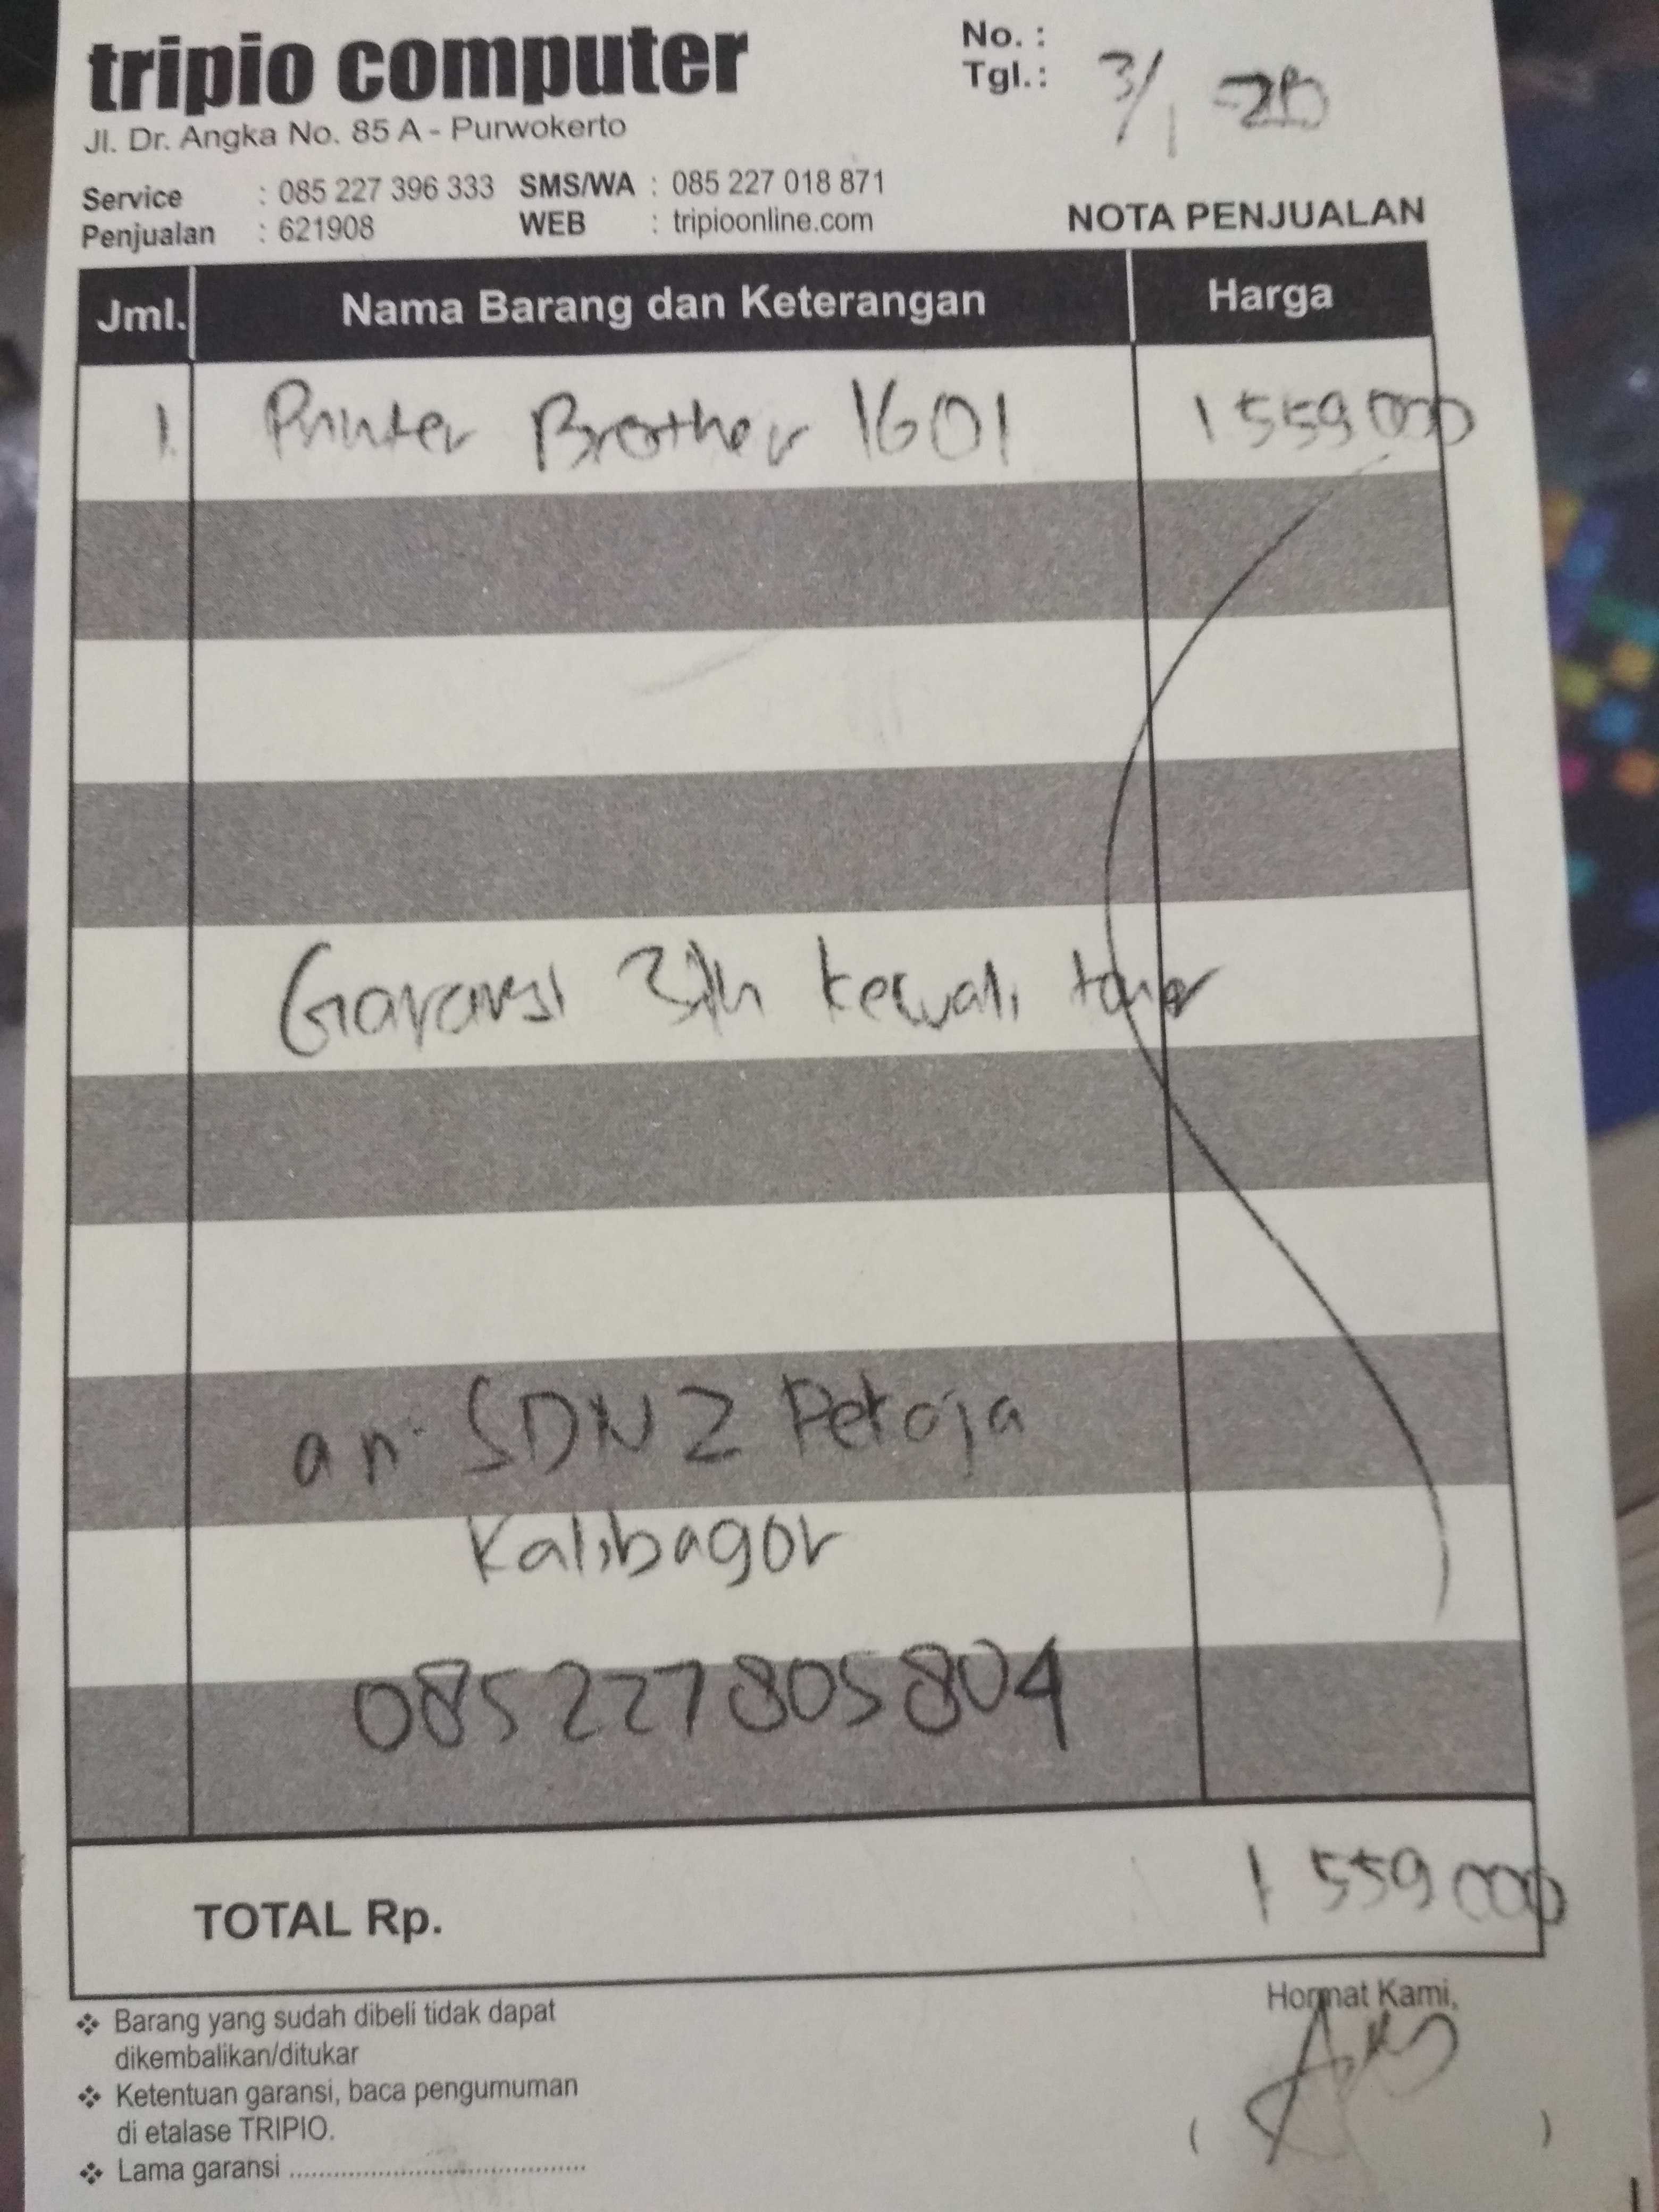 tripio computer
Jl. Dr. Angka No. 85 A - Purwokerto
No. :
Tgl. : 3/1 -20
Service : 085 227 396 333 SMS/WA : 085 227 018 871
Penjualan : 621908 WEB : tripioonline.com
NOTA PENJUALAN
Jml. Nama Barang dan Keterangan Harga
1. Printer Brother 1601 1559000
Garansi 3th kecuali toner
an. SDN 2 Petaja
Kalibagor
085227805804
TOTAL Rp. 1 559 000
Hormat Kami,
❖ Barang yang sudah dibeli tidak dapat
dikembalikan/ditukar
❖ Ketentuan garansi, baca pengumuman
di etalase TRIPIO.
❖ Lama garansi ..........................................
( )